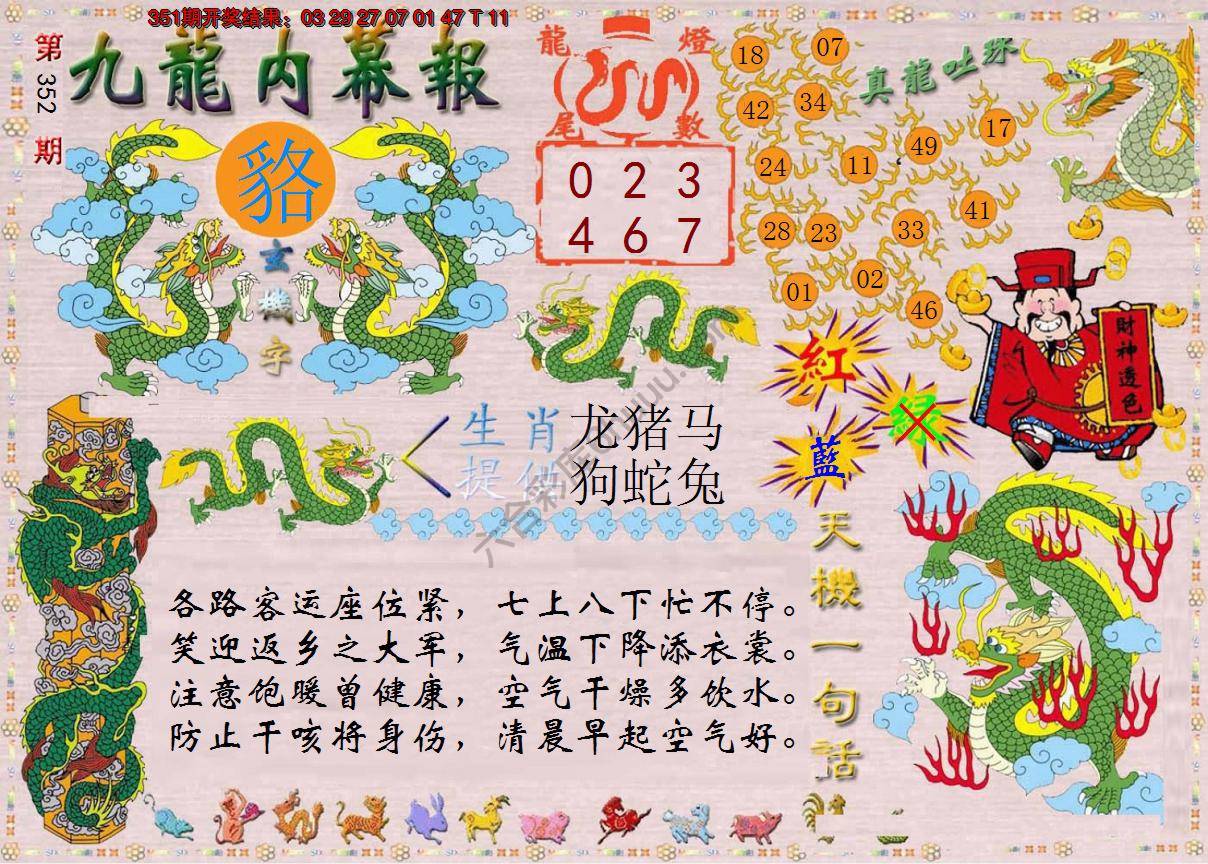 351期开奖结果：03 29 27 07 01 47 T 11
第352期
九龍内幕報
貉
玄機字
龍燈
尾數
0 2 3
4 6 7
真龍吐珠
18 07
42 34
24 11 49 17
28 23 33 41
01 02 46
紅
綠
藍
財神透色
生肖 龙猪马
提供 狗蛇兔
各路客运座位紧，七上八下忙不停。
笑迎返乡之大军，气温下降添衣裳。
注意饱暖曾健康，空气干燥多饮水。
防止干咳将身伤，清晨早起空气好。
天機一句話